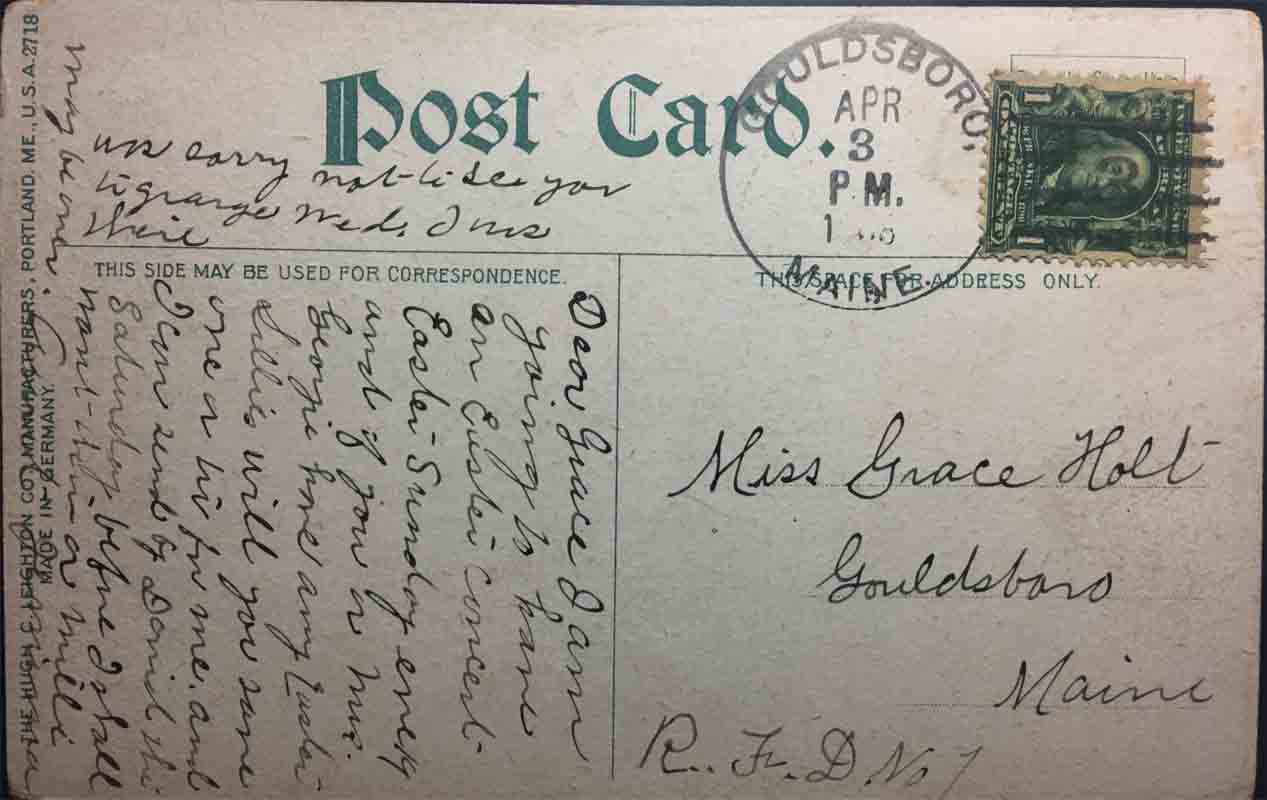 Post Card.
GOULDSBORO,
APR
3
P.M.
MAINE.
1 1
THIS SIDE MAY BE USED FOR CORRESPONDENCE.
THIS SPACE FOR ADDRESS ONLY.
Miss Grace Holt
Gouldsboro
Maine
R. F. D. No 1
Dear Grace I am
going to have
an Easter concert
Easter Sunday eve
and if you or Mrs.
George have any Easter
Lillies will you save
one or two for me. and
I can send by
Saturday before I shall
want
may be over.
was sorry not to see you
to grange Wed. I was
there
THE HUGH C. LEIGHTON CO., MANUFACTURERS, PORTLAND, ME., U.S.A. 2718
MADE IN GERMANY.